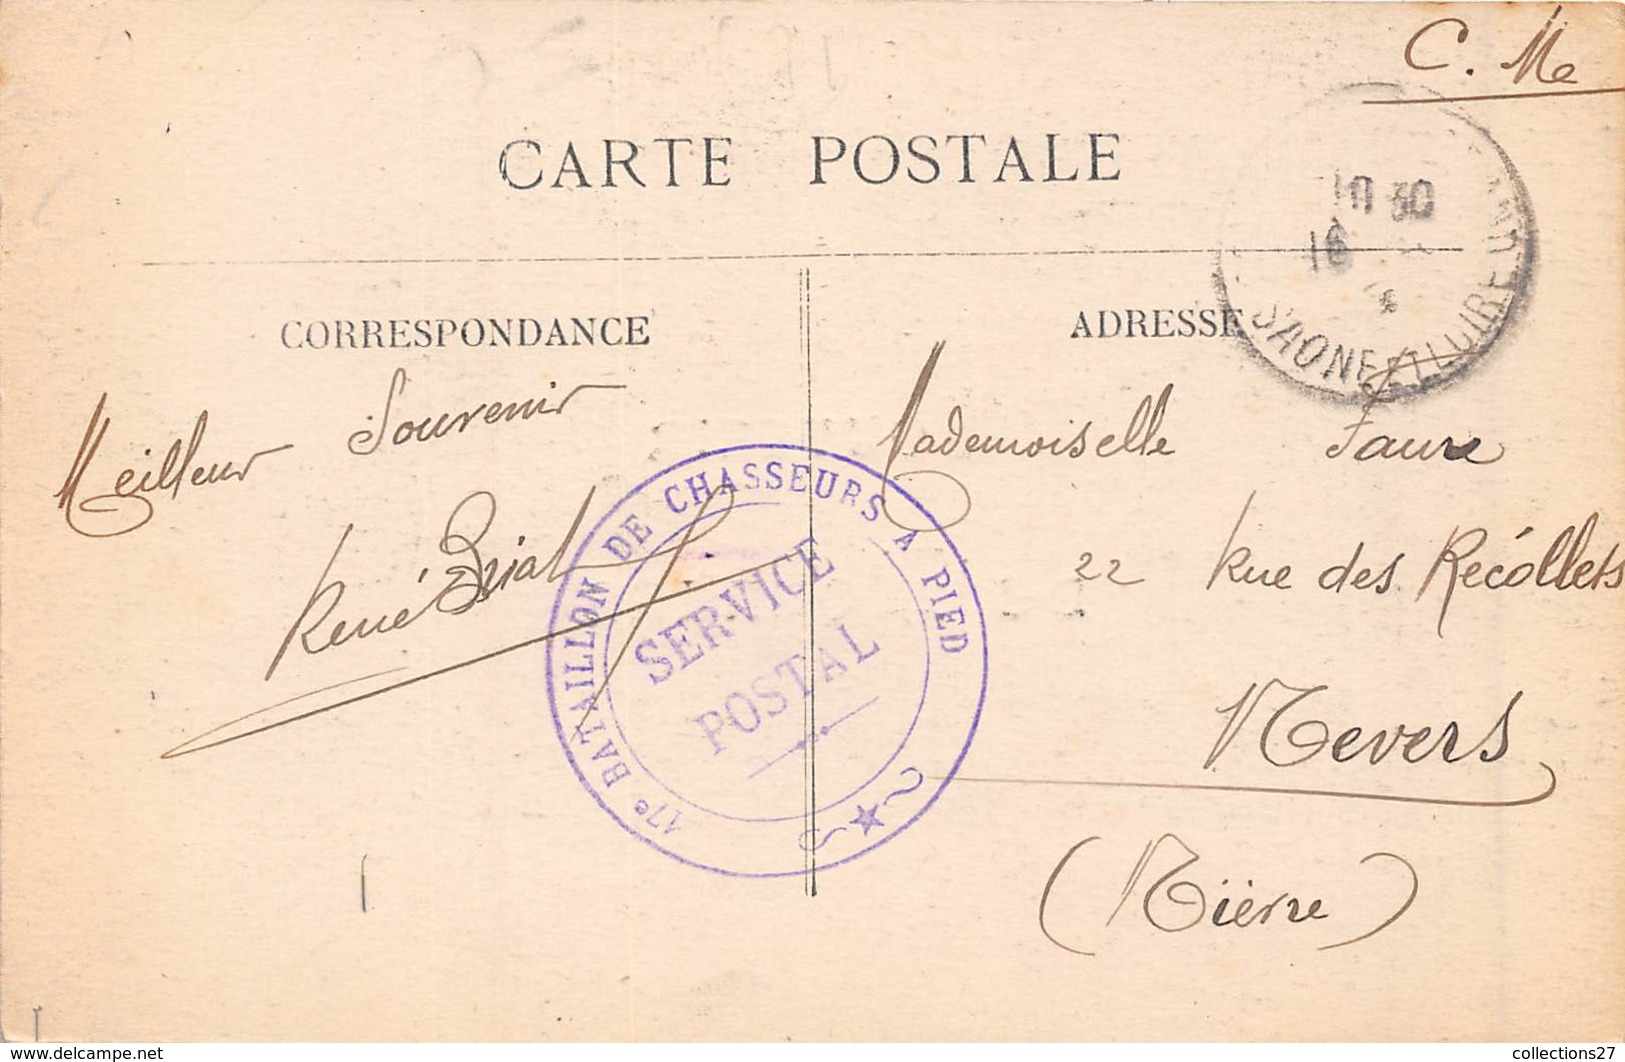 C. Me
CARTE POSTALE
10 30
16
SAONE ET LOIRE
CORRESPONDANCE
ADRESSE
Meilleur Souvenir
René
17e BATAILLON DE CHASSEURS A PIED
SERVICE
POSTAL
Mademoiselle Faure
22 Rue des Récollets
Nevers
(Nièvre)
www.delcampe.net
collections27